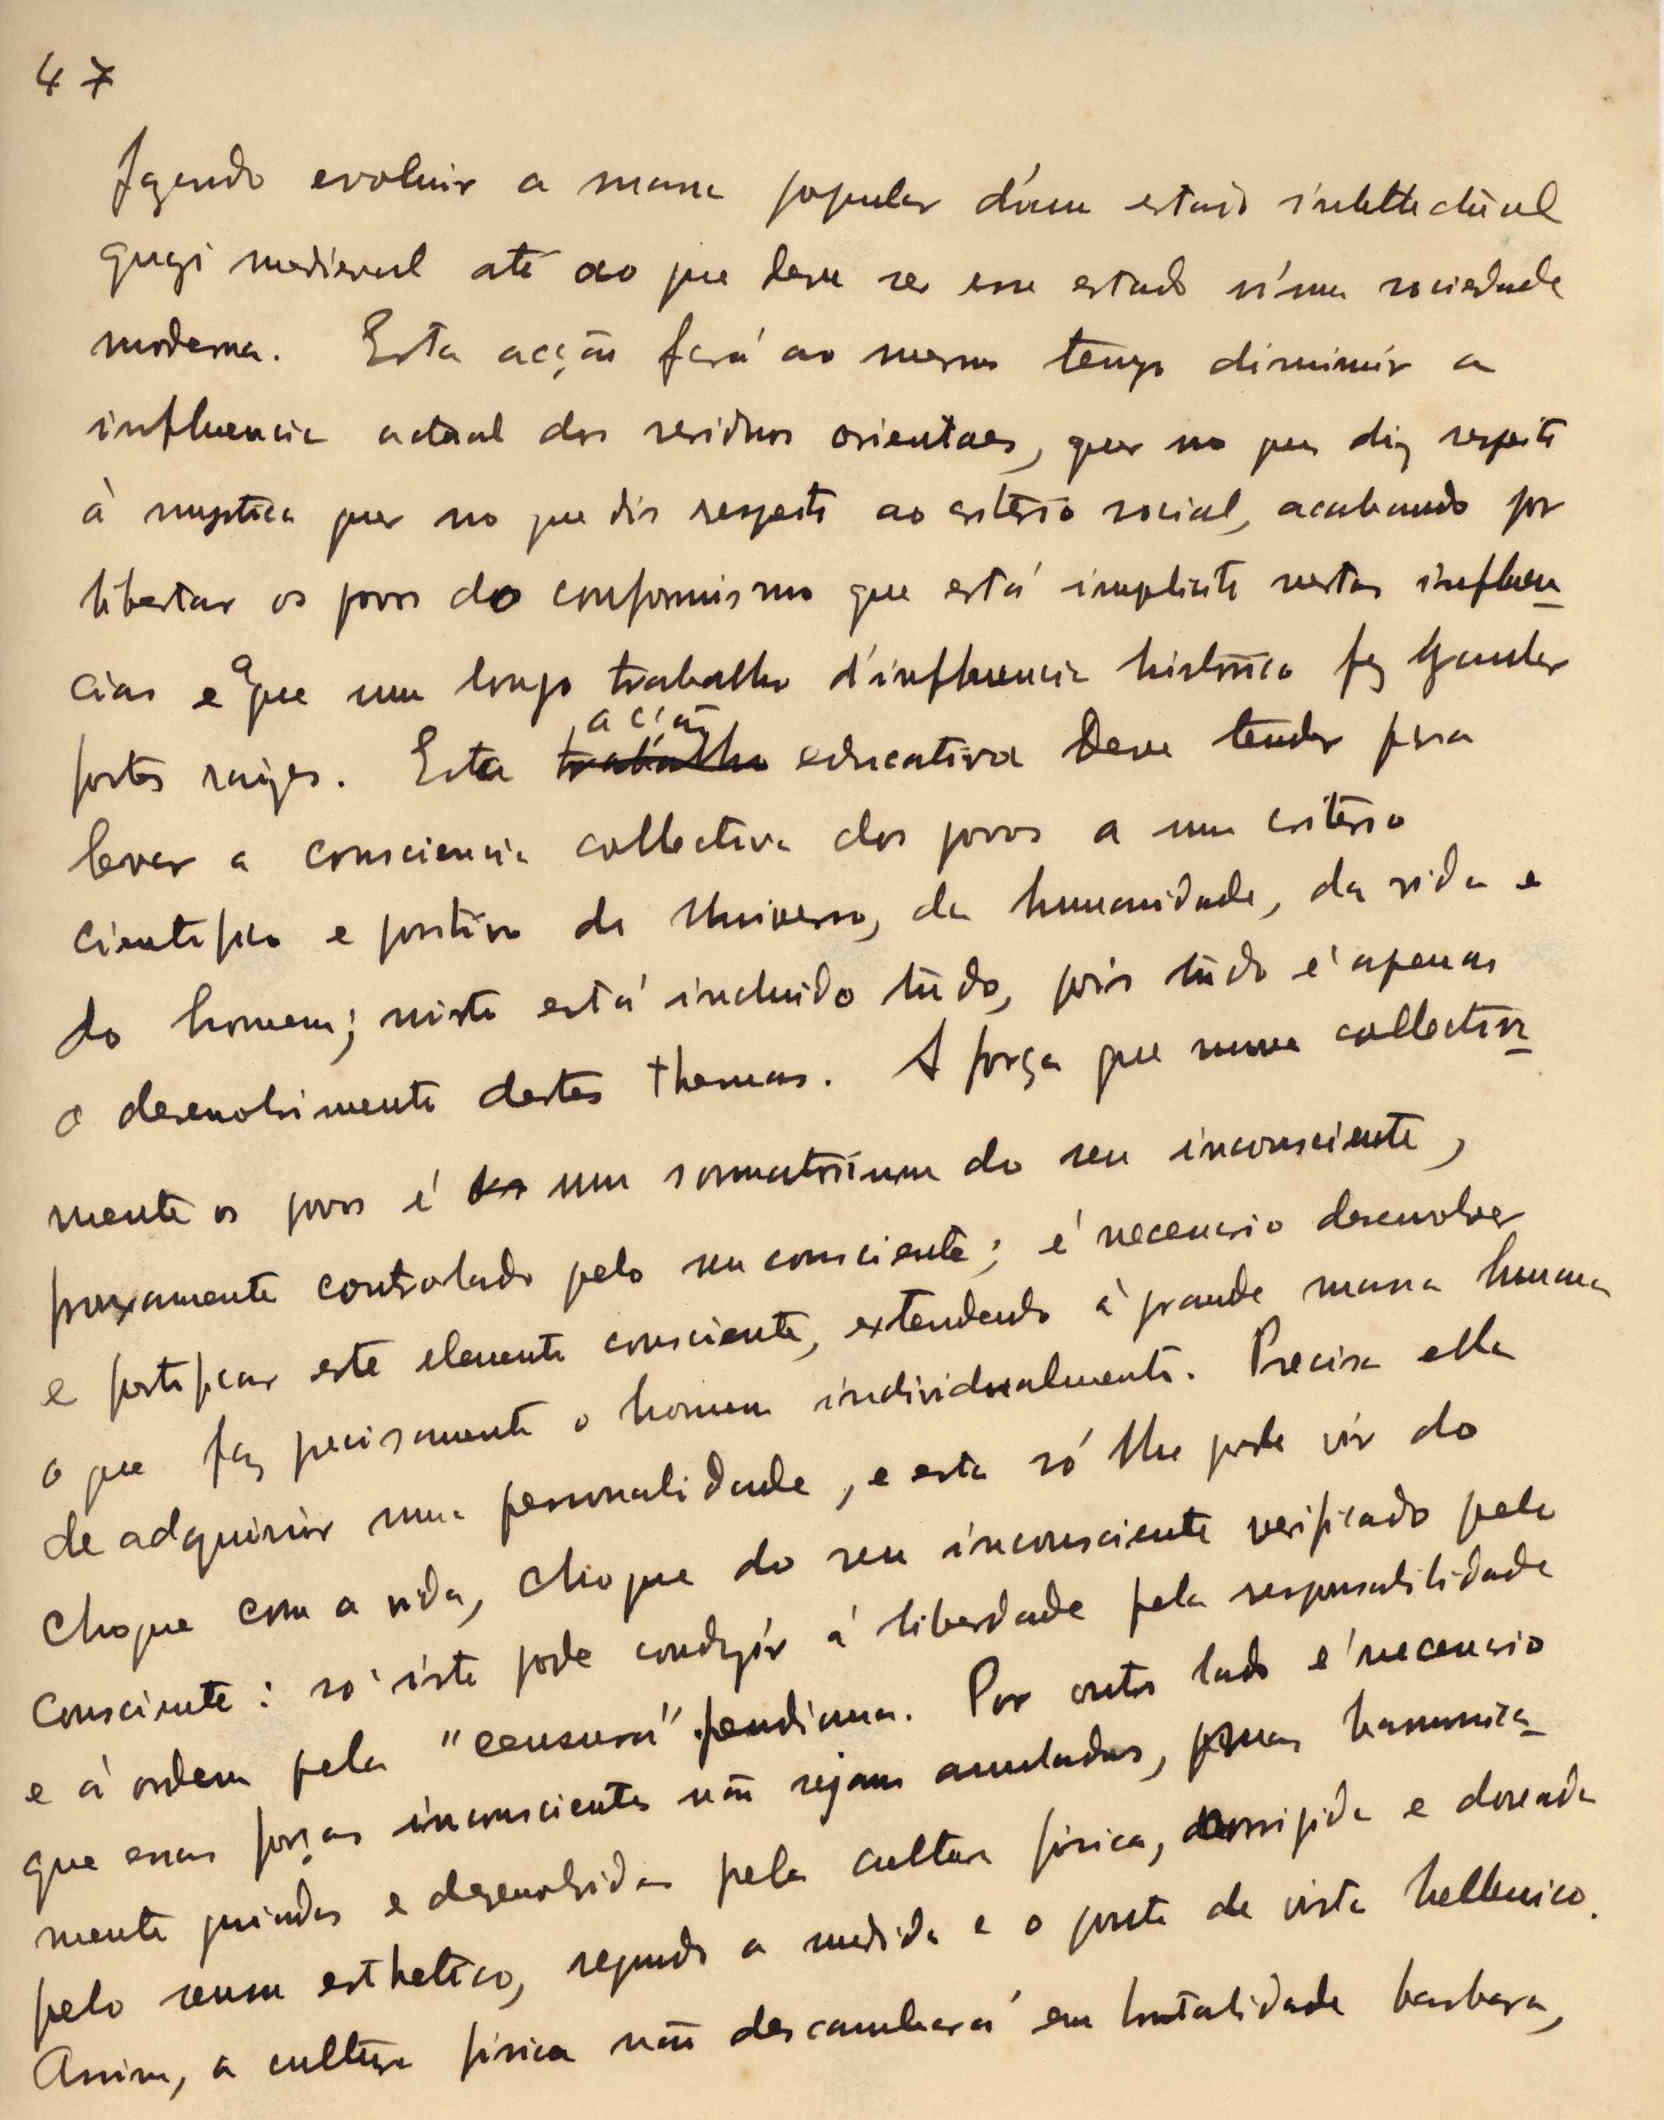 47
fazendo evoluir a massa popular d'um estado intellectual
quazi medieval até ao que deve ser esse estado n'uma sociedade
moderna. Esta acção fará ao mesmo tempo diminuir a
influencia actual dos residuos orientaes, quer no que diz respeito
à mystica quer no que dis respeito ao criterio social, acabando por
libertar os povos do conformismo que está implicito nestas influen
cias e a que um longo trabalho d'influencia historica fez ganhar
fortes raizes. Esta acção trabalho educativa deve tender para
levar a consciencia collectiva dos povos a um criterio
cientifico e positivo do Universo, da humanidade, da vida e
do homem; nisto está incluido tudo, pois tudo é apenas
o desenvolvimento destes themas. A força que move collectiva
mente os povos é um somatorium do seu inconsciente,
frouxamente controlado pelo seu consciente; é necessario desenvolver
e fortificar este elemento consciente, extendendo à grande massa humana
o que faz precisamente o homem individualmente. Precisa ella
de adquirir uma personalidade, e esta só lhe pode vir do
choque com a vida, choque do seu inconsciente verificado pelo
consciente: só isto pode conduzir á liberdade pela responsabilidade
e à ordem pela "censura" freudiana. Por outro lado é necessario
que essas forças inconscientes não sejam anuladas, mas harmonica
mente guiadas e dezenvolvidas pela cultura fisica, corrigida e doseada
pelo senso esthetico, segundo a medida e o ponto de vista hellenico.
Assim, a cultura fisica não descambará em brutalidade barbara,